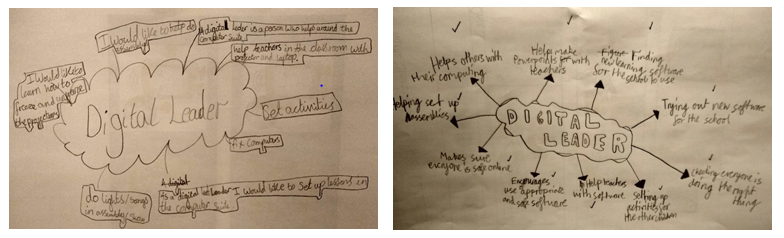 I would like to help do
A digital leader is a person who helps around the
computer suite
help teachers in the classroom with
projector and laptop.
I would like to
learn how to
freeze and
the projectors
Digital Leader
Set activities
Fix computers
do lights/
in assembly
A digital
As a digital leader I would like to set up lessons in
the computer suite
Helps others with
their computing
Help make
Powerpoints for with
teachers
Figure Finding
new learning software
for the school to use
Helping set up
assemblies
Trying out new software
for the school
DIGITAL
LEADER
Makes sure
everyone is safe online
Encourages
use appropriate
and safe software
Help teachers
with software
Setting up
activities for
the other children
checking everyone is
doing the right
thing